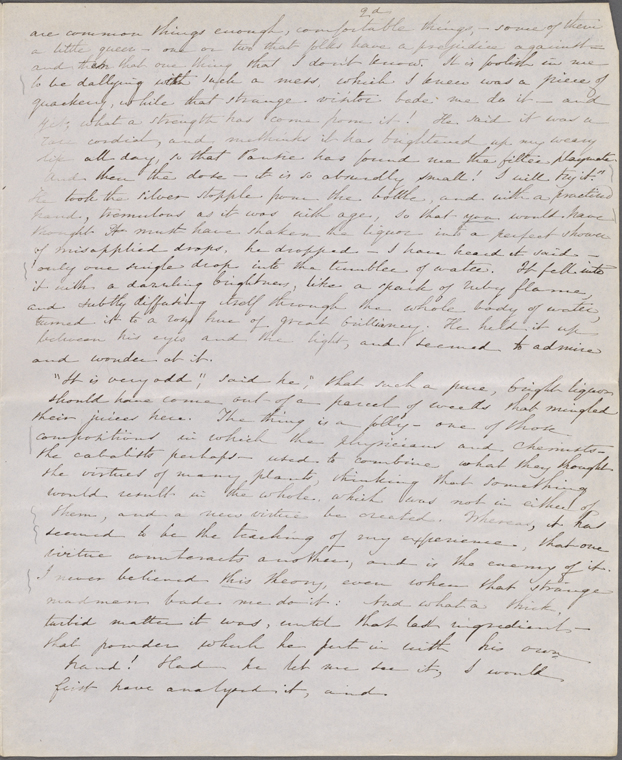 9d
are common things enough, comfortable things, - some of them
a little queer - one or two that folks have a prejudice against -
and then that one thing that I don't know. It is foolish in me
to be dallying with such a mess, which I knew was a piece of
quackery, while that strange visitor bade me do it - and
yet, what a strength has come from it! He said it was a
cordial, and methinks it has brightened up my weary
life all day, so that Pansie has found me the fitter playmate.
And then the dose - it is so absurdly small! I will try it."
He took the silver stopple from the bottle, and with a practised
hand, tremulous as it was with age, so that you would have
thought it must have shaken the liquor into a perfect shower
of misapplied drops, he dropped - I have heard it said -
only one single drop into the tumbler of water. It fell into
it with a dazzling brightness, like a spark of ruby flame,
and subtly diffusing itself through the whole body of water,
turned it to a rosy hue of great brilliancy. He held it up
between his eyes and the light, and seemed to admire
and wonder at it.
"It is very odd", said he, "that such a pure, bright liquor
should have come out of a parcel of weeds that mingled
their juices here. The thing is a folly - one of those
compositions in which the physicians and chemists -
the cabalists perhaps - used to combine what they thought
the virtues of many plants, thinking that something
would result in the whole which was not in either of
them, and a new virtue be created. Whereas, it has
seemed to be the teaching of my experience, that one
virtue counteracts another, and is the enemy of it.
I never believed this theory, even when that strange
madman bade me do it: And what a thick,
turbid matter it was, until that last ingredient -
that powder which he put in with his own
hand! Had he let me see it, I would
first have analyzed it, and